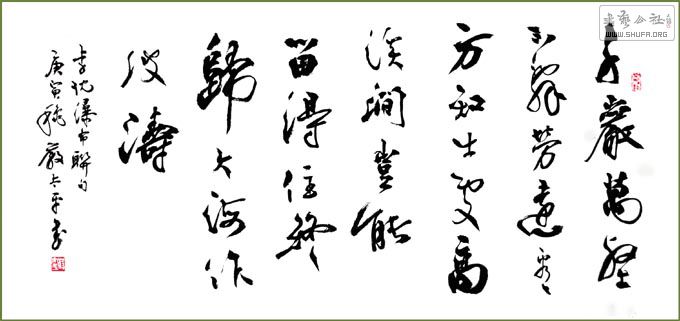 書藝公社
WWW.SHUFA.ORG
千巖萬壑
不辭勞遠看
方知出處高
溪澗豈能
留得住終
歸大海作
波濤
李忱瀑布聯句
庚寅秋嚴太平書